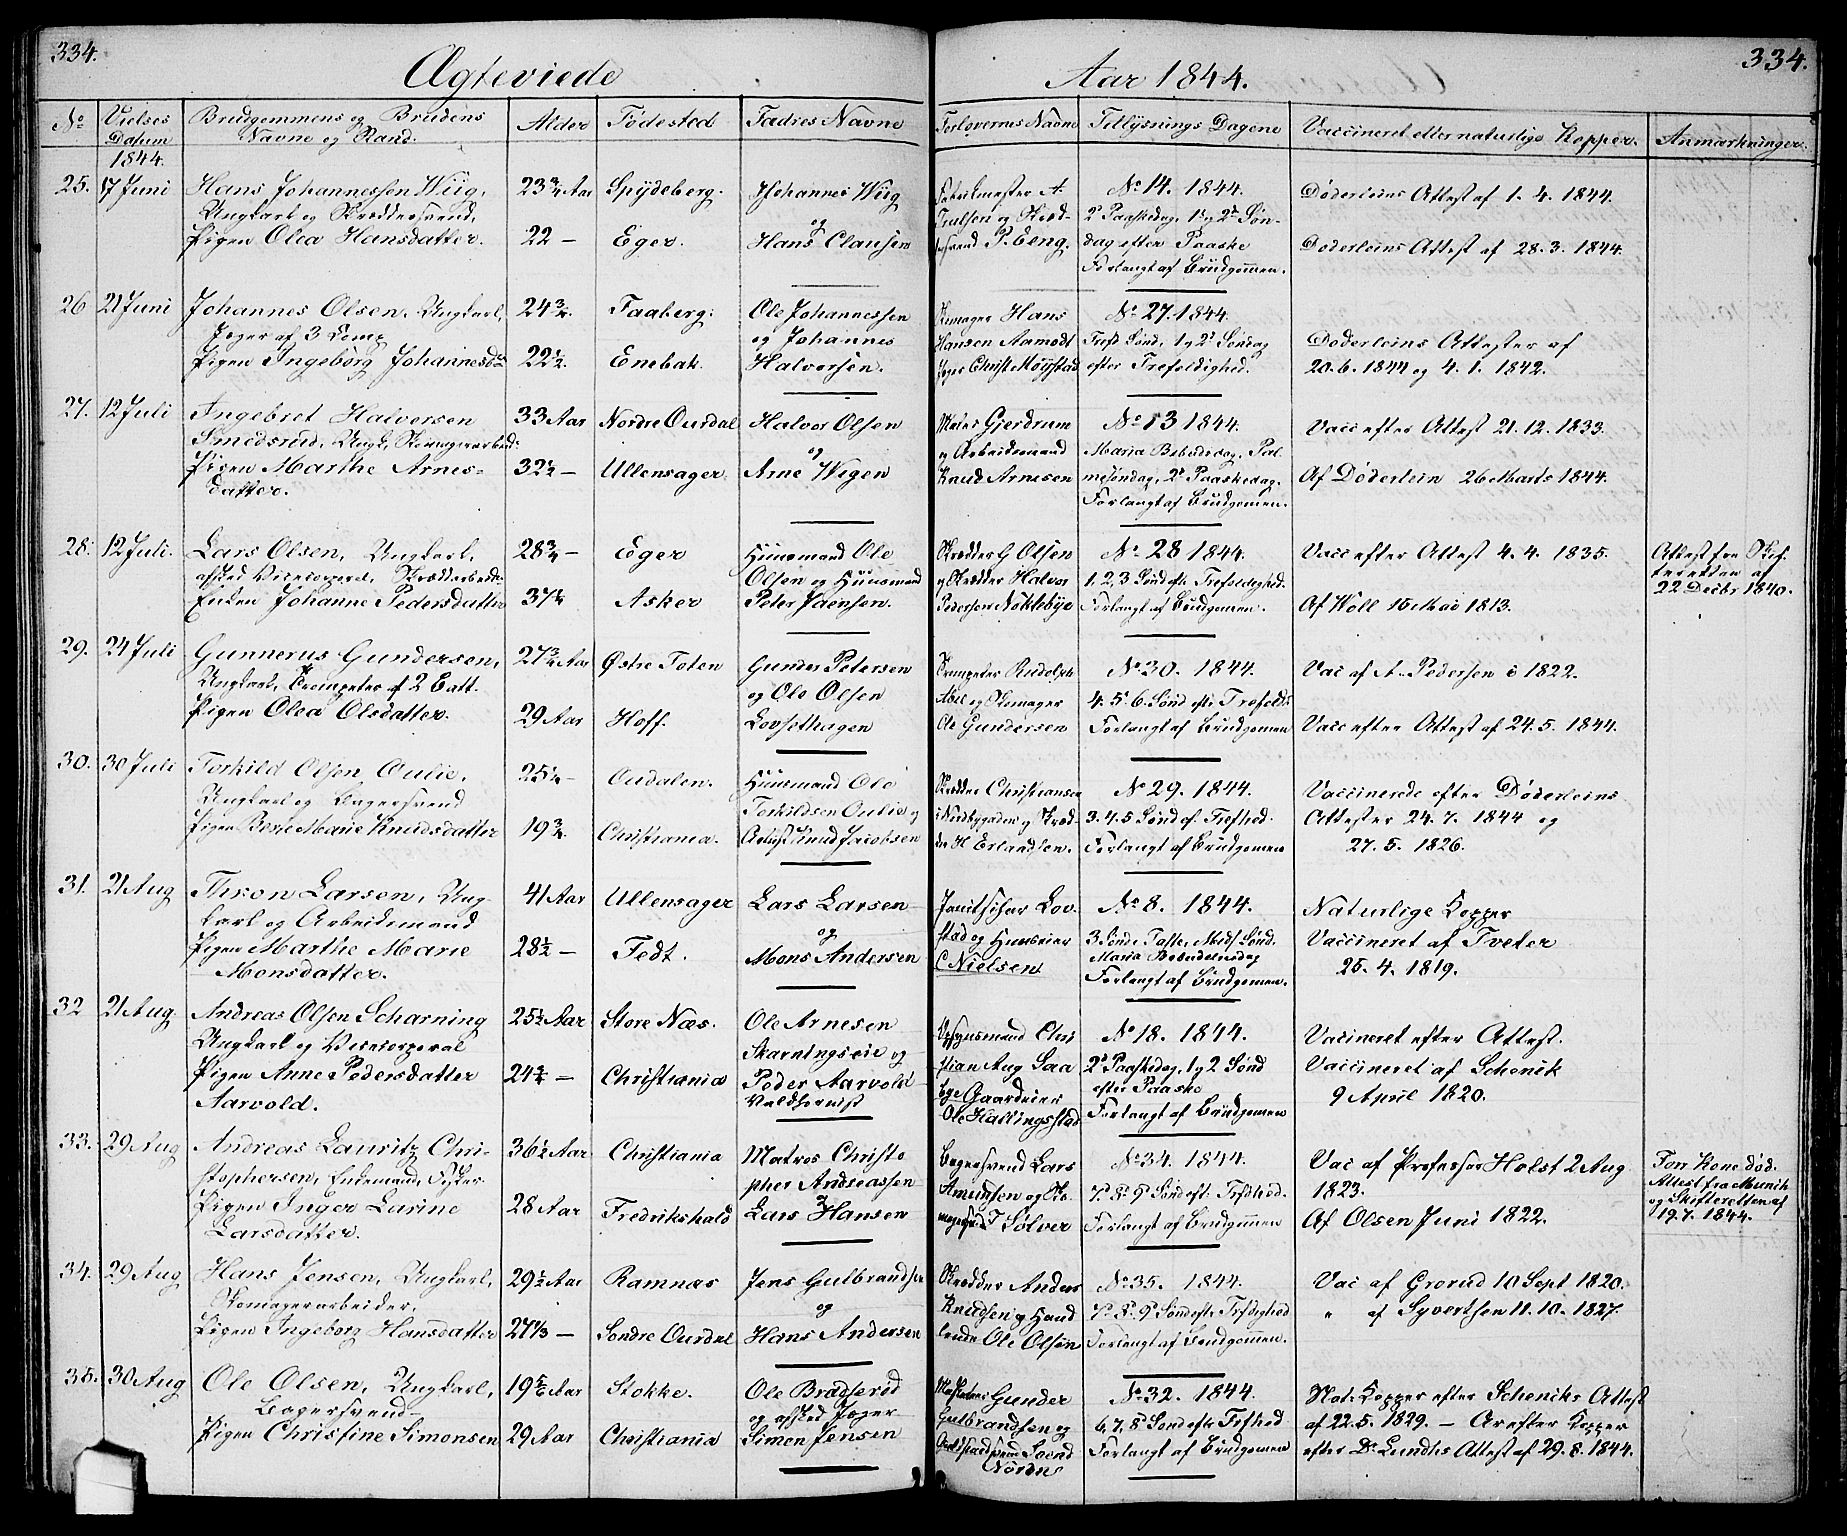 334.
Ægteviede
Aar 1844.
334.
No
Vielses Datum
Brudgommens og Brudens Navne og Stand.
Alder
Födested
Fadres Navne
Forlovernes Navne
Tillysnings Dagene
Vaccineret eller naturlige Kopper.
Anmærkninger.
1844.
25. 17 Juni Hans Johannessen Wiig, 23¾ Aar Spydeberg. Johannes Wiig
Ungkarl og Skræddersvend, og
Pigen Olea Hansdatter. 22 — Eger. Hans Clausen
No 14. 1844. Døderleins Attest af 1. 4. 1844.
2den Paaskedag, 1 og 2den Søn-
dag efter Paaske Døderleins Attest af 28. 3. 1844.
Forlangt af Brudgommen.
26 21 Juni Johannes Olsen, Ungkarl, 24¾. Faaberg. Ole Johannessen
Jeger af 3 Comp og Johannes
Pigen Ingeborg Johannesdr 22½. Enebak. Halvorsen.
Skomager Hans No 27. 1844.
Hansen Aamodt Døderleins Attester af
Jeger Christ Møystad efter Trefoldighed. 20. 6. 1844 og 4. 1. 1842.
27. 12 Juli Ingebret Halversen 33 Aar Nordre Ourdal Halvor Olsen
Smidsrud, Ungk, Skomagerarbeid: og
Pigen Marthe Arnes- 32½ — Ullensager Arne Wigen
datter.
Maler Gjerdrum No 13 1844. Vacc efter Attest 21. 12. 1833.
og Arbeidsmand Maria Bebudsdag, Pal-
Knud Arnesen mesøndag, 2den Paaskedag. Af Døderlein 26 Marts 1844.
Forlangt af Brudgommen.
28. 12 Juli. Lars Olsen, Ungkarl, 28¾ — Eger Huusmand Ole
afsked Vicecorporal, Skrædderbeid: Olsen og Huusmand
Enken Johanne Pedersdatter 37¼ Asker Peter Jaensen.
Skrædder G Olsen No 28 1844. Vacc efter Attest 4. 4. 1835. Attest fra Skif-
og Skrædder Halvor 1, 2, 3 Sønd eft Trefoldighed. teretten af
Pedersen Nøklebye Forlangt af Brudgommen. Af Woll 15 Mai 1813. 22 Decbr 1840.
29. 24 Juli Gunnerus Gundersen, 27¾ Aar Østre Toten Gunder Petersen
Ungkarl, Trompeter af 2 Batt. og Ole Olsen
Pigen Olea Olsdatter. 29 Aar Hoff. Lovsethagen
Trompeter Rudolph No 30. 1844. Vac af A. Pedersen i 1822.
Abel og Skomager 4. 5. 6. Sønd eft Trefold:
Ole Gundersen Forlangt af Brudgommen Vacc efter Attest af 24. 5. 1844.
30. 30 Juli Torkild Olsen Oulie, 25¼ — Oudalen. Huusmand Ole
Ungkarl og Bagersvend Torkildsen Oulie og
Pigen Berte Marie Knudsdatter 19¾. Christiania. Knud Jacobsen
Skrædder Christiansen No 29. 1844. Vaccinerede efter Døderleins
3. 4. 5 Sønd ef. Trefhed. Attester 24. 7. 1844 og
H Erlandsen. Forlangt af Brudgommen 27. 5. 1826.
31. 21 Aug Thron Larsen, Ung- 41 Aar Ullensager Lars Larsen
karl og Arbeidsmand og
Pigen Marthe Marie 28½ — Fedt. Mons Andersen
Monsdatter.
Janitschar Lov- No 8. 1844. Naturlige Kopper
stad og Huuseier 3 Sønd. Faste, Midf Sønd. Vaccineret af Tveter
C Nielsen Maria Bebudelsesdag 25. 4. 1819.
Forlangt af Brudgommen.
32 21 Aug. Andreas Olsen Scharning 25½ Aar Store Næs. Ole Arnesen
Ungkarl og Vicecorporal Skarningseie og
Pigen Anne Pedersdatter 24¾ — Christiania Peder Aarvold
Aarvold. Valdhornist
Opsynsmand Chri No 18. 1844. Vaccineret efter Attest.
stian Aug Saa 2den Paaskedag, 1 og 2 Sønd Vaccineret af Schenik
bye Gaardeier efter Paaske 9 April 1820.
Ole Hallingsstad Forlangt af Brudgommen
33. 29 Aug Andreas Lauritz Chri- 36½ Aar Christiania Matros Christo
stophersen, Enkemand, Fisker pher Andreassen
Pigen Inger Lurine 28 Aar Fredrikshald Lars Hansen
Larsdatter.
Bagersvend Lars No 34. 1844. Vac af Professor Holst 2 Aug Forr Kone død.
Amundsen og Sko 7. 8. 9 Sønd eft: Trfhed. 1823. Attest fra Munch
magersvd T Sølver Forlangt af Brudgommen Af Olsen Juni 1822. og Skifteretten af
19. 7. 1844.
34. 29 Aug Hans Jensen, Ungkarl, 29½ Aar Ramnæs Jens Gulbrandsen
Skomagerarbeider, og
Pigen Ingeborg Hansdatter 27⅓ — Søndre Ourdal Hans Andersen
Skrædder Anders No 35. 1844. Vac af Grorud 10 Sept. 1820.
Knudsen og Hand 7. 8. 9 Sønd eft Trfoldighed " af Syvertsen 11. 10. 1827.
lende Ole Olsen Forlangt af Brudgommen.
35. 30 Aug Ole Olsen, Ungkarl, 19⅚ Aar Stokke. Ole Brødserød
Bagersvend og afsked Jeger
Pigen Christine Simonsen 29 Aar Christiania Simen Jensen
Gunder No 32. 1844. Nat. Kopper efter Scheniks Attest
Gulbrandsen og 6, 7, 8 Sønd eft Trfhed af 22. 5. 1829. — Ar efter Kopper
Svend Forlangt af Brudgommen efter Dr Lundhs Attest af 29. 8. 1844.